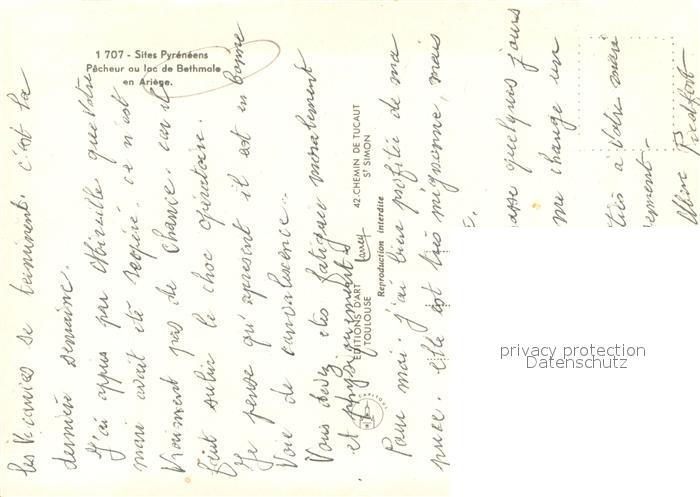 1 707 - Sites Pyrénéens
Pêcheur au lac de Bethmale
en Ariège.
les vacances se terminent. c'est la
dernière semaine.
J'ai appris par Mireille que votre
mari avait été réopéré. ce n'est
vraiment pas de chance. car il
faut subir le choc opératoire.
Je pense qu'à présent il est en bonne
voie de convalescence.
Vous devez être fatiguée moralement
et physiquement
Pour moi j'ai bien profité de ma
puce. Elle est très mignonne, mais
passe quelques jours
me change un
à votre mari
EDITIONS D'ART
TOULOUSE
Larrey
42. CHEMIN DE TUCAUT
St SIMON
Reproduction interdite
CAPITOUL
privacy protection
Datenschutz